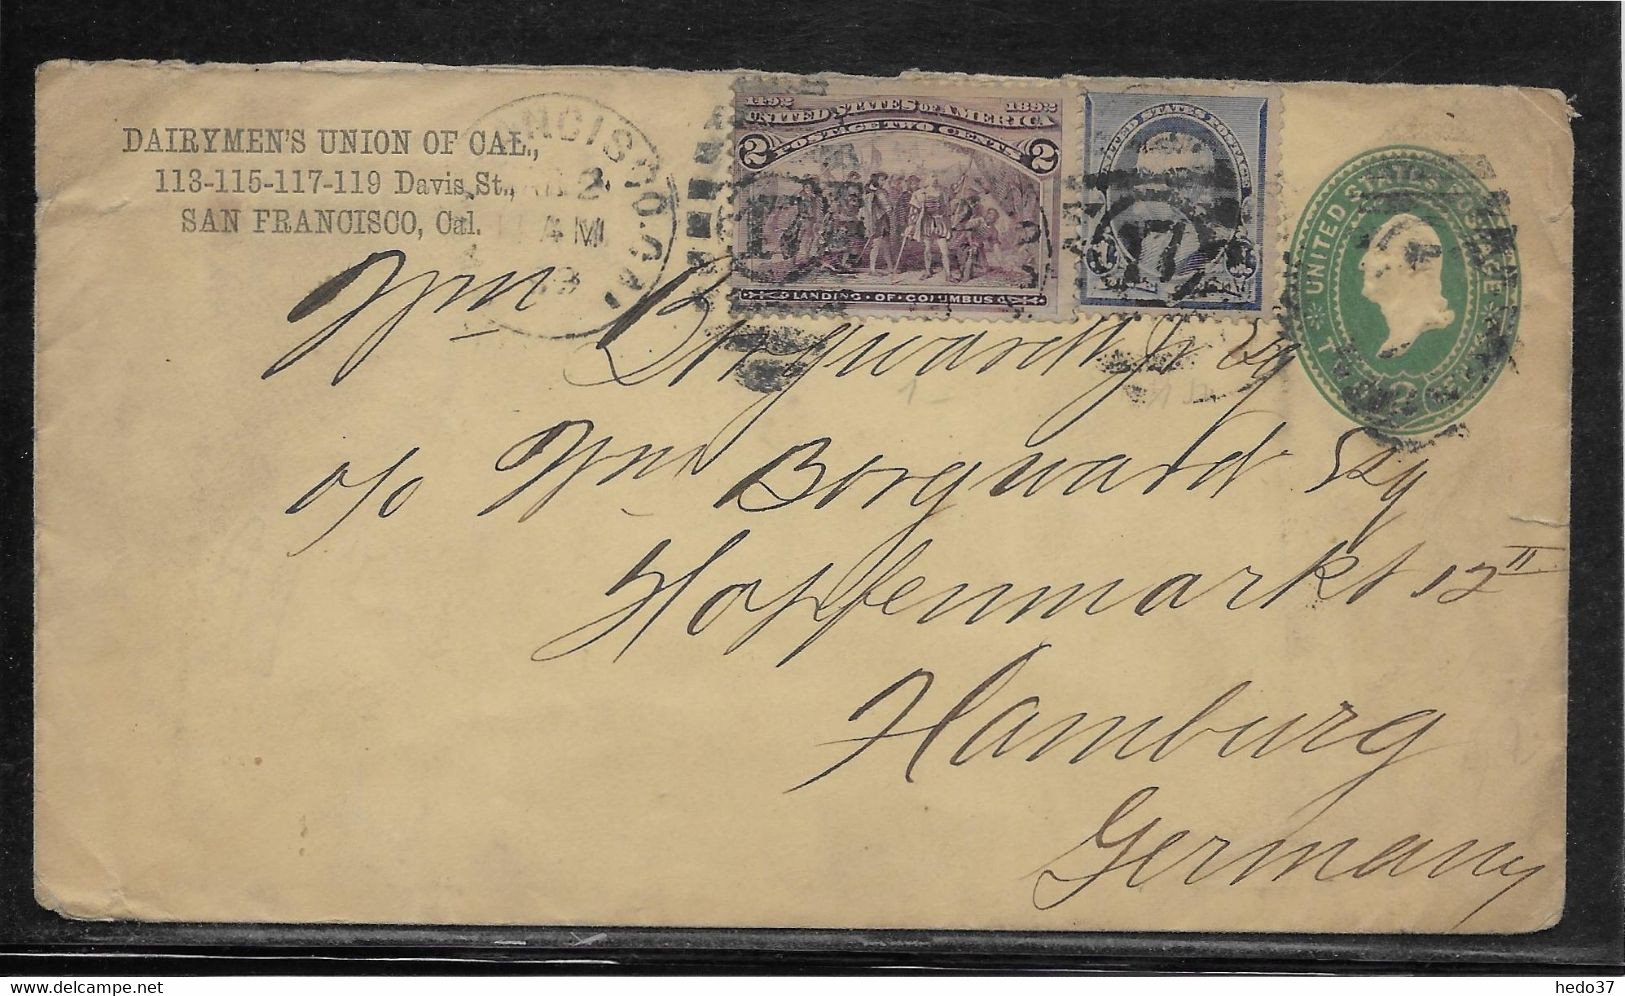 DAIRYMEN'S UNION OF CAL.,
113-115-117-119 Davis St.,
SAN FRANCISCO, Cal.
ANCISCO. CAL
2
AM
1492 1892
UNITED STATES OF AMERICA
POSTAGE TWO CENTS
2 2
LANDING OF COLUMBUS
17
UNITED STATES POSTAGE
17
UNITED STATES POSTAGE
Wm Borgwardt Jr Esq
c/o Wm Borgward Esq
Hopfenmarkt 12 II
Hamburg
Germany
hedo37